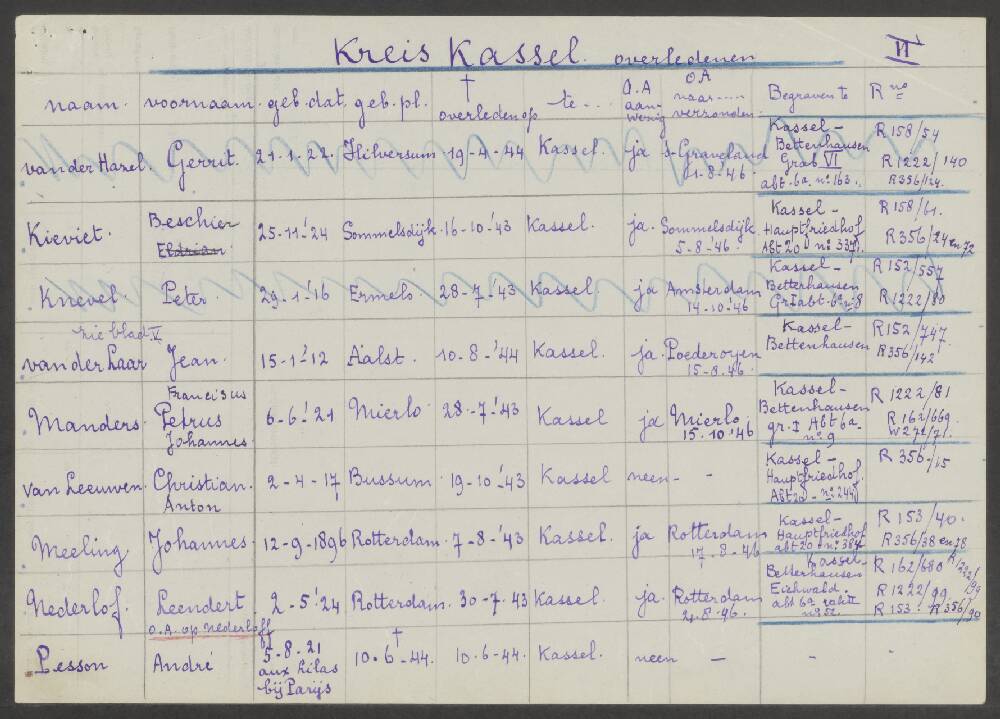 Kreis Kassel. overledenen VI
naam. voornaam. geb. dat. geb. pl. † overleden op te --- O.A aanwezig O.A naar ---- verzonden Begraven te R no
van der Hazel. Gerrit. 21-1-'22. Hilversum 19-4-'44 Kassel. ja 's-Graveland 21-8-'46. Kassel- Bettenhausen Grab VI abt. 6a. no 163. R 158/54 R 1222/140 R 356/124.
Kieviet. Beschier 25-11-'24 Sommelsdijk 16-10-'43 Kassel. ja. Sommelsdijk 5-8-'46. Kassel- Hauptfriedhof Abt 20 no 337. R 158/61. R 356/24 en 72
Knevel. Peter. 29-1-'16 Ermelo. 28-7-'43 Kassel ja Amsterdam 14-10-'46 Kassel- Betterhausen Gr I abt. 6a no 8 R 152/557 R 1222/80
zie blad V
van der Laar Jean. 15-1-'12 Aalst. 10-8-'44 Kassel. ja. Poederoyen 15-8-'46. Kassel- Bettenhausen R 152/747. R 356/142
Manders. Franciscus Petrus Johannes. 6-6-'21 Mierlo 28-7-'43 Kassel ja Mierlo 15.10.'46 Kassel- Bettenhausen gr. I Abt 6a. no 9 R 1222/81 R 162/669 W 272/71.
van Leeuwen. Christian. Anton 2-4-17 Bussum. 19-10-'43 Kassel neen - - Kassel- Hauptfriedhof Abt 20 - no R 356-/15
Meeling Johannes. 12-9-1896 Rotterdam. 7-8-'43 Kassel. ja Rotterdam 17-8-46 Kassel- Hauptfriedhof abt 20 no 384. R 153/40. R 356/38 en 78
Nederlof. Leendert. 2-5-'24 Rotterdam. 30-7-43 Kassel. ja. Rotterdam 21-8-'46. Kassel- Betterhausen Eichwald. abt 6a no 52. R 162/680 R 1222/99. R 153- R 356/90
O.A. op Nederloff
Pesson André 5-8-21 aux Lilas bij Parijs 10-6†-44. 10-6-44. Kassel. neen - - -